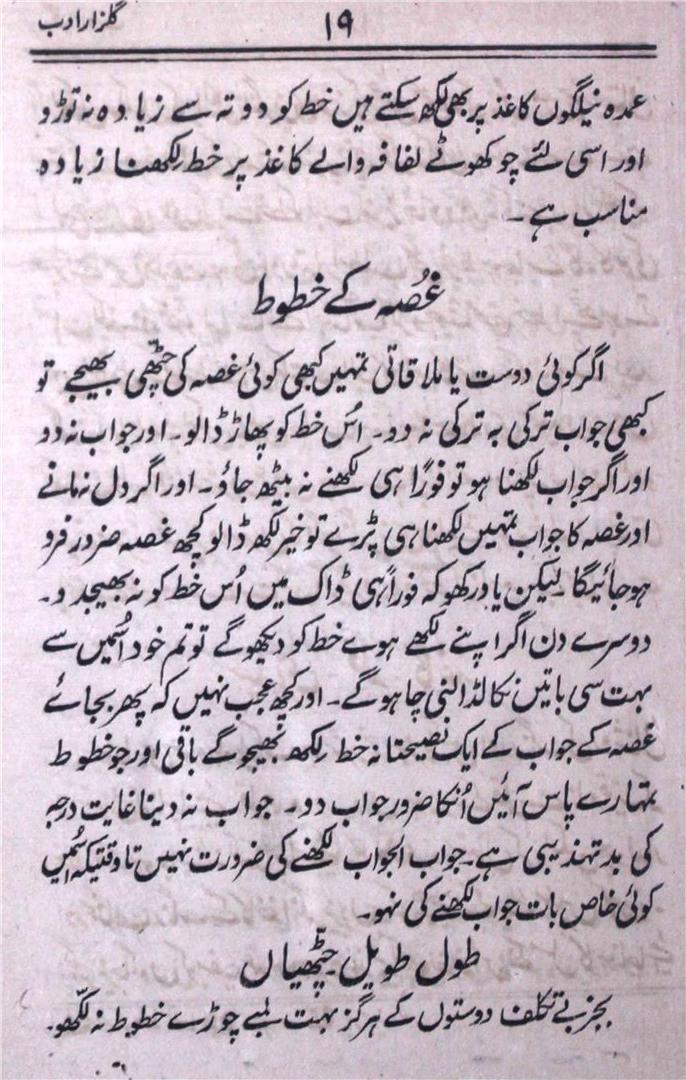 گلزار ادب
۱۹
عمدہ نیلگوں کاغذ پر بھی لکھ سکتے ہیں خط کو دو تہ سے زیادہ نہ توڑو
اور اسی لئے چو کھوٹے لفافہ والے کاغذ پر خط لکھنا زیادہ
مناسب ہے ۔
غُصہ کے خطوط
اگر کوئی دوست یا ملاقاتی تمہیں کبھی کوئی غصہ کی چٹھی بھیجے تو
کبھی جواب ترکی بہ ترکی نہ دو۔ اُس خط کو پھاڑ ڈالو۔ اور جواب نہ دو
اور اگر جواب لکھنا ہو تو فوراً ہی لکھنے نہ بیٹھ جاؤ۔ اور اگر دل نہ مانے
اور غصہ کا جواب تمہیں لکھنا ہی پڑے تو خیر لکھ ڈالو کچھ غصہ ضرور فرو
ہو جائیگا لیکن یاد رکھو کہ فوراً ہی ڈاک میں اُس خط کو نہ بھیجد و۔
دوسرے دن اگر اپنے لکھے ہوے خط کو دیکھوگے تو تم خود اسمیں سے
بہت سی باتیں نکالڈالنی چاہو گے۔ اور کچھ عجب نہیں کہ پھر بجائے
غصہ کے جواب کے ایک نصیحتانہ خط لکھ بھیجو گے باقی اور جو خطوط
تمہارے پاس آئیں اُنکا ضرور جواب دو۔ جواب نہ دینا غایت درجہ
کی بد تہذیبی ہے۔ جواب الجواب لکھنے کی ضرورت نہیں تا وقتیکہ اسُمیں
کوئی خاص بات جواب لکھنے کی نہو۔
طول طویل چٹھیاں
بجز بے تکلف دوستوں کے ہرگز بہت لمبے چوڑے خطوط نہ لکھو۔